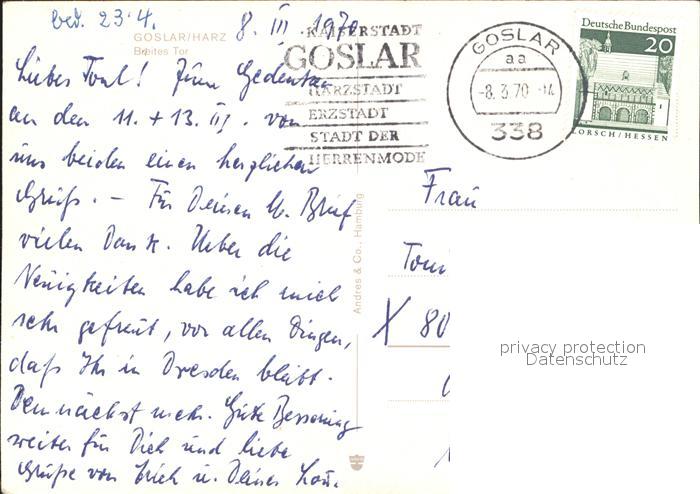 bed. 23.4.
GOSLAR/HARZ
Breites Tor
8. III 1970
KAISERSTADT
GOSLAR
HARZSTADT
ERZSTADT
STADT DER
HERRENMODE
GOSLAR
aa
-8.3.70 -14
338
Deutsche Bundespost
20
LORSCH/HESSEN
Liebes Toni! Zum Gedenken
an den 11. + 13. III. von
uns beiden einen herzlichen
Gruß. – Für Deinen lb. Brief
vielen Dank. Ueber die
Neuigkeiten habe ich mich
sehr gefreut, vor allen Dingen,
daß Ihr in Dresden bleibt.
Demnächst mehr. Gute Besserung
weiter für Dich und liebe
Grüße von Erich u. Deiner
Andres & Co., Hamburg
Frau
Toni
X 80
privacy protection
Datenschutz